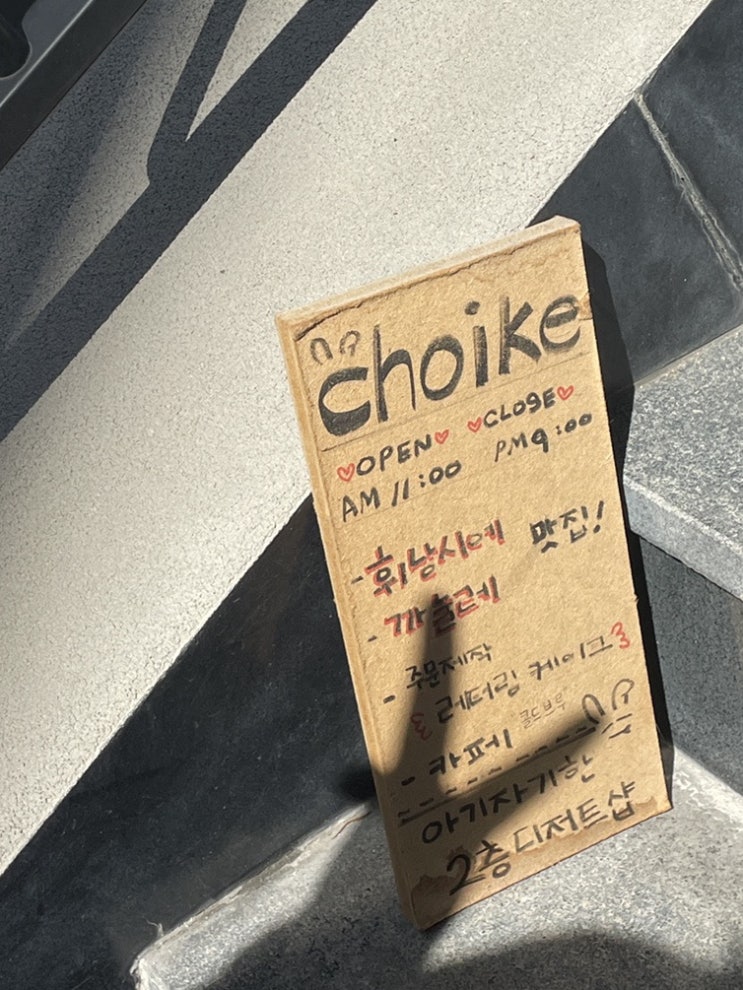 choike
♡OPEN♡ ♡CLOSE♡
AM 11:00 PM 9:00
-휘낭시에 맛집!
-까눌레
-주문제작
레터링 케이크
-카페
아기자기한
2층 디저트샵